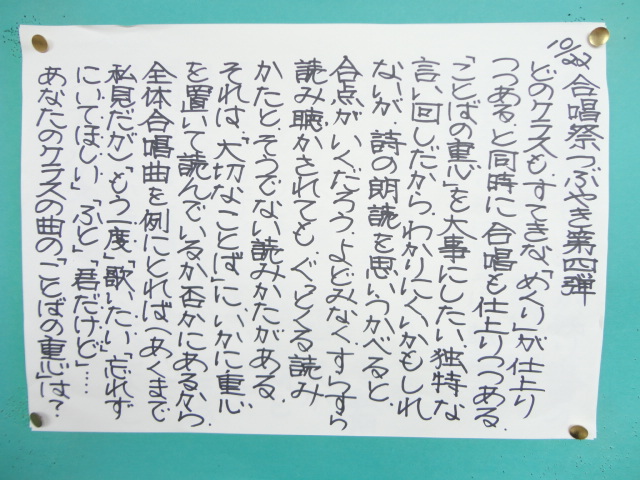 10/22 合唱祭つぶやき第四弾
どのクラスも、すてきな「めくり」が仕上り
つつある。と同時に合唱も仕上りつつある。
「ことばの重心」を大事にしたい。独特な
言い回しだから、わかりにくいかもしれ
ないが、詩の朗読を思いうかべると、
合点がいくだろう。よどみなく、すらすら
読み聴かされても、ぐっとくる読み
かたと、そうでない読みかたがある。
それは、「大切なことば」に、いかに重心
を置いて読んでいるか否かにあるから。
全体合唱曲を例にとれば（あくまで
私見だが）「もう一度」「歌いたい」「忘れず
にいてほしい」「ふと」「君だけど」……
あなたのクラスの曲の「ことばの重心」は？